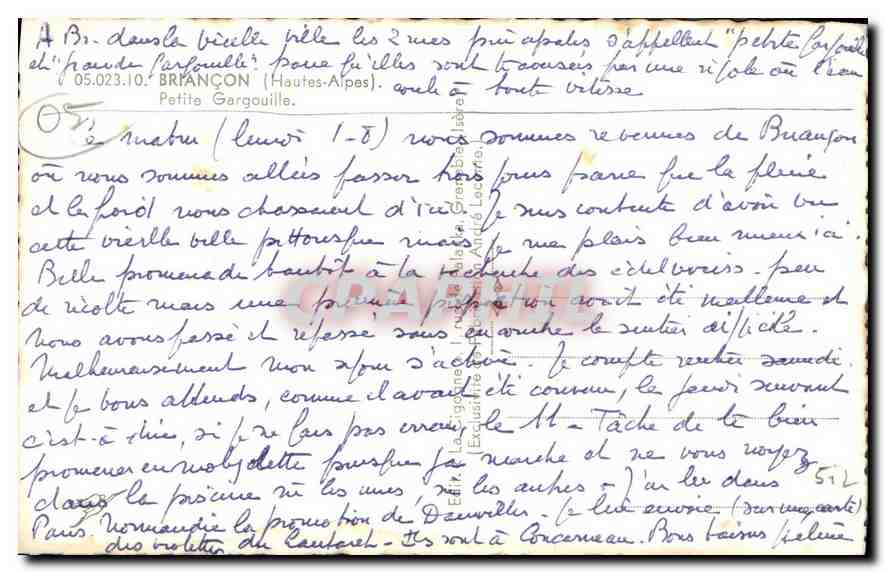 A Br- dans la vieille ville les 2 rues principales s'appellent "petite Gargouille
et "grande Gargouille" parce qu'elles sont traversées par une rigole où l'eau
05.023.10. BRIANÇON (Hautes-Alpes). coule à toute vitesse
Petite Gargouille.
05
Ce matin (lundi 1-8) nous sommes revenues de Briançon
où nous sommes allées passer trois jours parce que la pluie
et le froid nous chassaient d'ici. Je suis contente d'avoir vu
cette vieille ville pittoresque mais je me plais bien mieux ici.
Belle promenade tantôt à la recherche des edelweiss - peu
de récolte mais une première avait été meilleure et
nous avons passé et repassé sans encombre le sentier difficile.
Malheureusement mon séjour s'achève. Je compte rentrer samedi
et je vous attends, comme il avait été convenu, le jeudi suivant
c'est-à-dire, si je ne fais pas erreur, le 11 - Tâche de te bien
promener en mobylette puisque ça marche et ne vous noyez
dans la piscine ni les unes, ni les autres - J'ai lu dans 512
Paris Normandie la promotion de Dauviller. Je lui envoie (sur une carte)
des violettes du Lautaret - Ils sont à Concarneau. Bons baisers
Edit. La Cigogne, Grenoble, Isère.
(Exclusivité de André Lecomte.)
CPARAMA